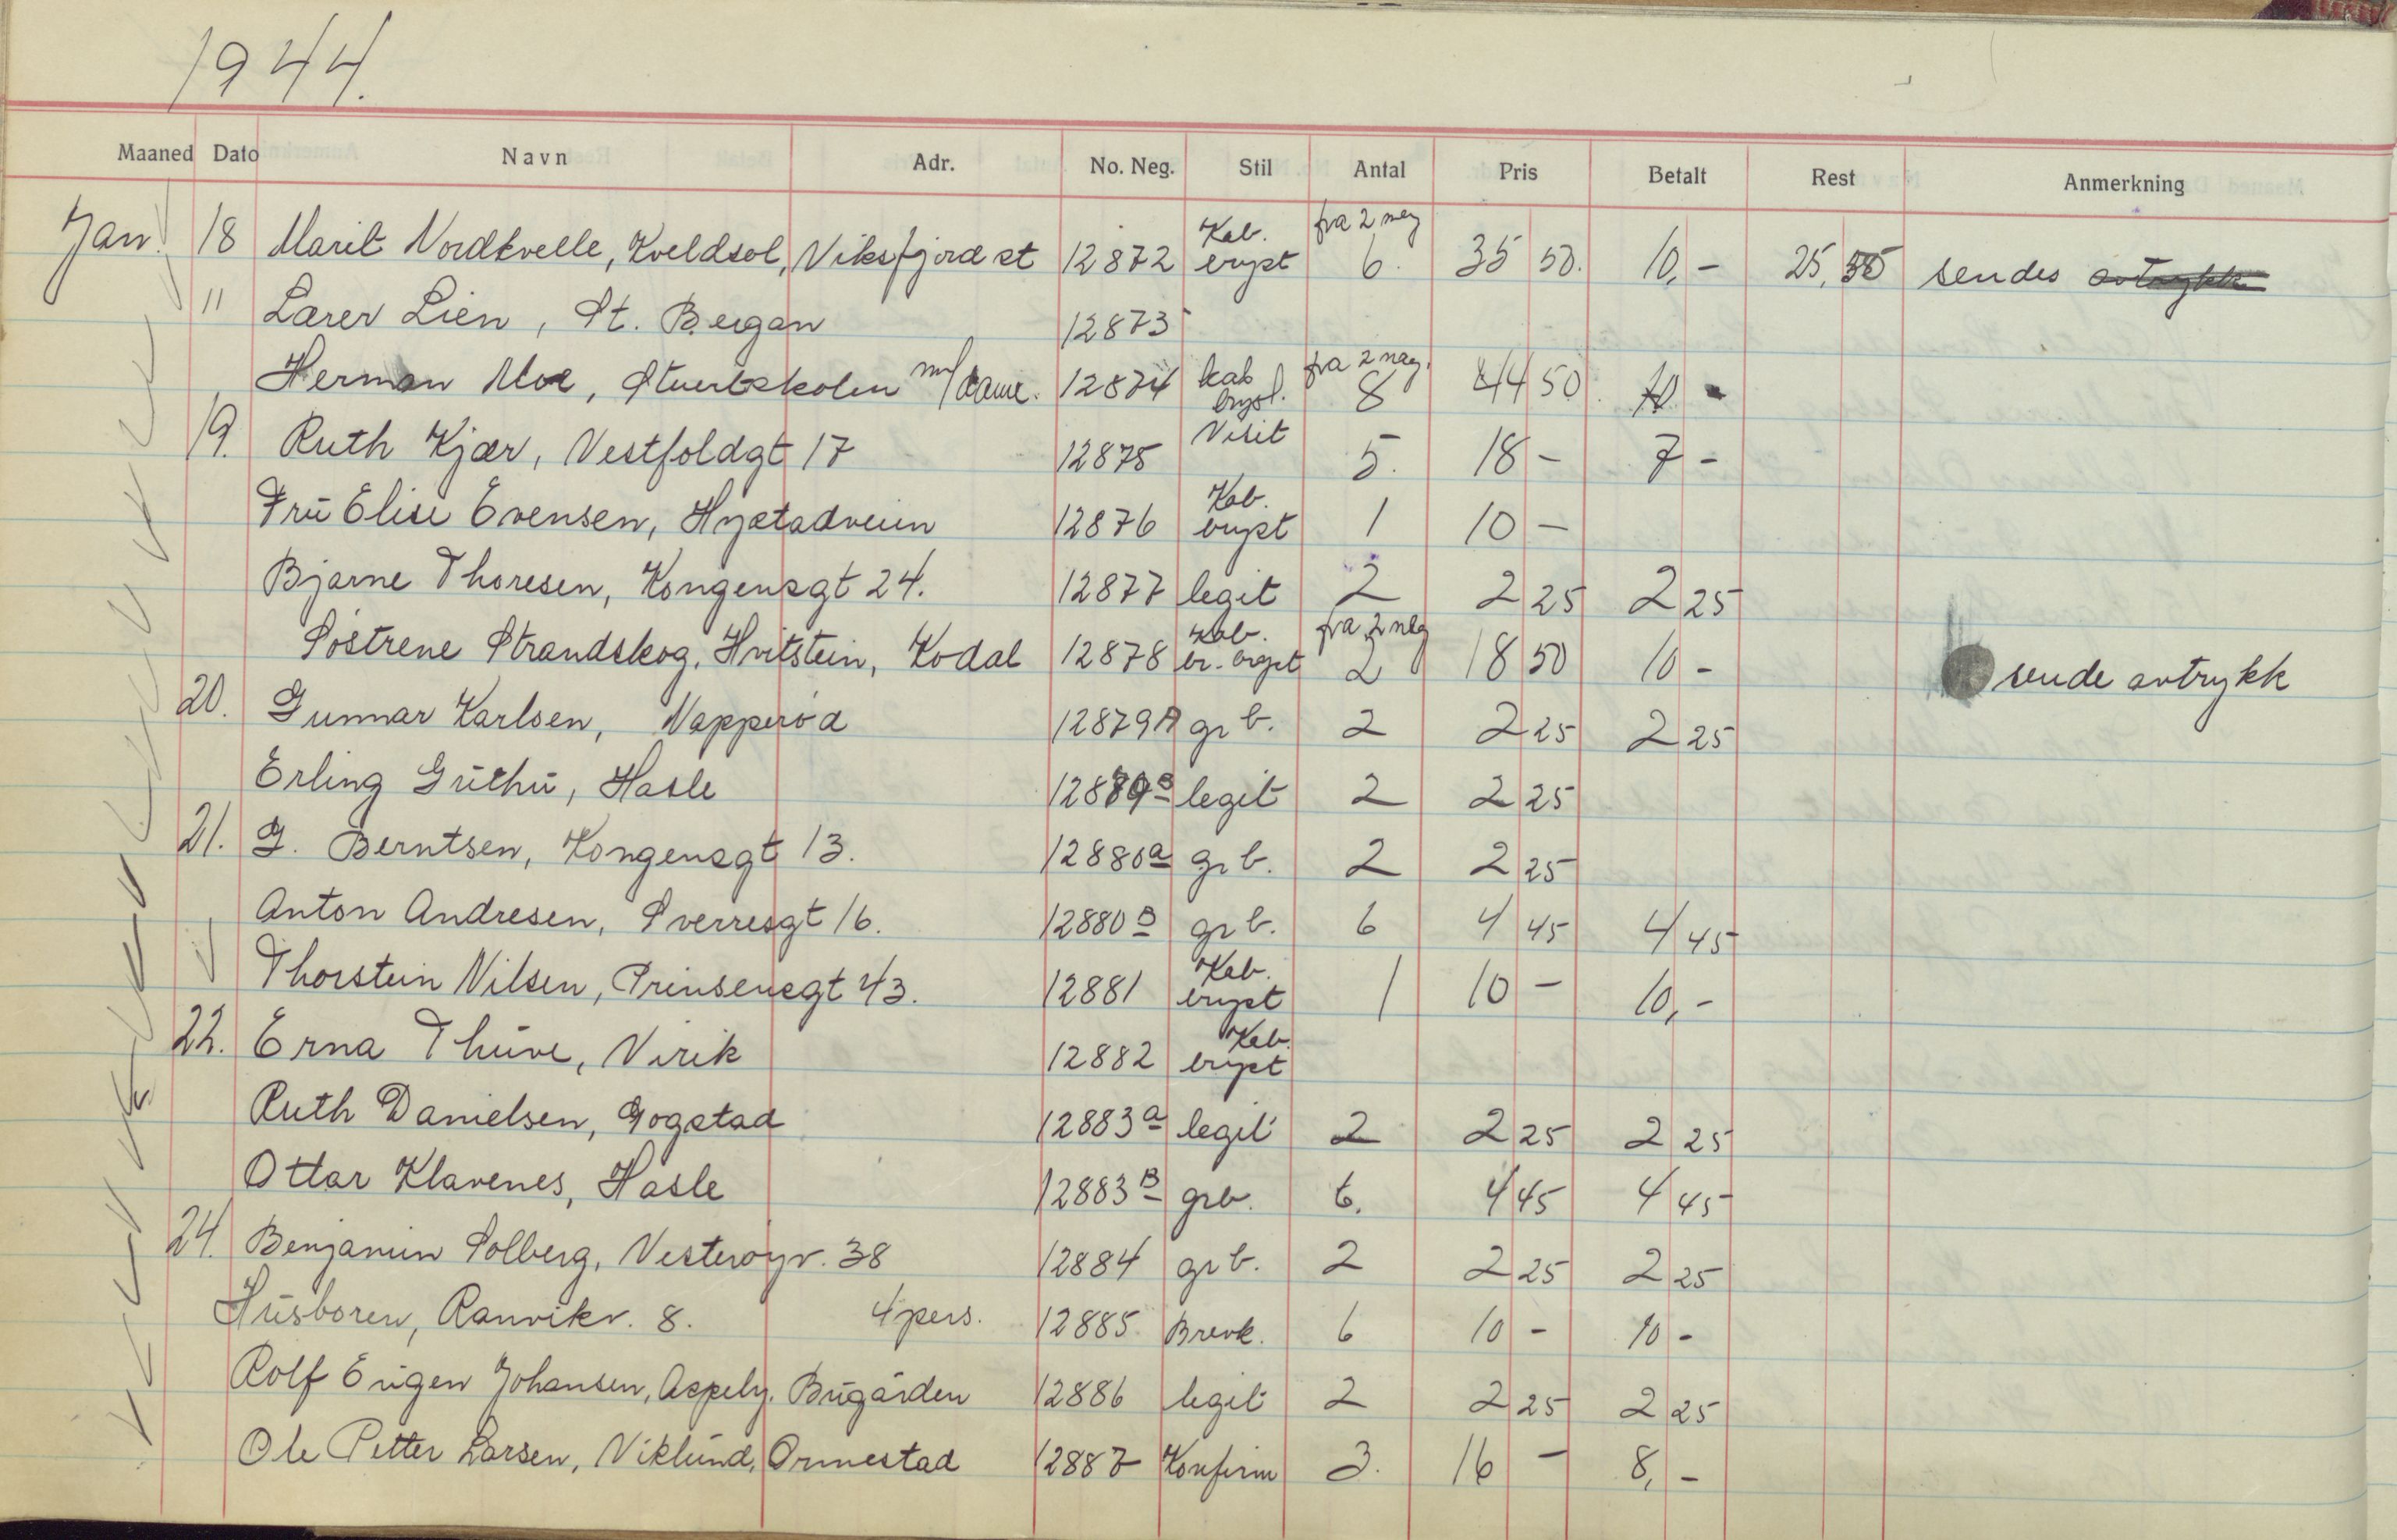 1944.
Maaned Dato Navn Adr. No. Neg. Stil Antal Pris Betalt Rest Anmerkning
Jan. 18 Marit Nordkvelle, Kveldsol, Viksfjord st 12872 Kab. bryst fra 2 neg 6. 35 50. 10,- 25,50 sendes avtrykk
" Lærer Lien, St. Bergan 12873
Herman Moe, Stuertskolen m/dame. 12874 kab bryst. fra 2 neg. 8 44 50. 10 -
19. Ruth Kjær, Vestfoldgt 17 12875 Visit 5. 18 - 7 -
Frū Elise Evensen, Hystadveien 12876 Kab. bryst 1 10 -
Bjarne Thoresen, Kongensgt 24. 12877 legit 2 2 25 2 25
Søstrene Strandskog, Hvitstein, Kodal 12878 Kab. br. bryst fra 2 neg 2 18 50 10 - sende avtrykk
20. Gunnar Karlsen, Napperød 12879A gr b. 2 2 25 2 25
Erling Grūthū, Hasle 12879B legit 2 2 25
21. G. Berntsen, Kongensgt 13. 12880a gr b. 2 2 25
Anton Andresen, Sverresgt 16. 12880B gr b. 6 4 45 4 45
Thorstein Nilsen, Prinsensgt 43. 12881 Kab. bryst 1 10 - 10,-
22. Erna Thūve, Virik 12882 Kab. bryst
Ruth Danielsen, Gogstad 12883a legit 2 2 25 2 25
Ottar Klavenes, Hasle 12883B grb. 6. 4 45 4 45
24. Benjamin Solberg, Vesterøyv. 38 12884 gr b. 2 2 25 2 25
Hūsboren, Ranvikv. 8. 4 pers. 12885 Brevk. 6 10 - 10 -
Rolf Eūgen Johansen, Aspely. Būgården 12886 legit 2 2 25 2 25
Ole Petter Larsen, Viklūnd, Ormestad 12887 Konfirm 3. 16 - 8,-